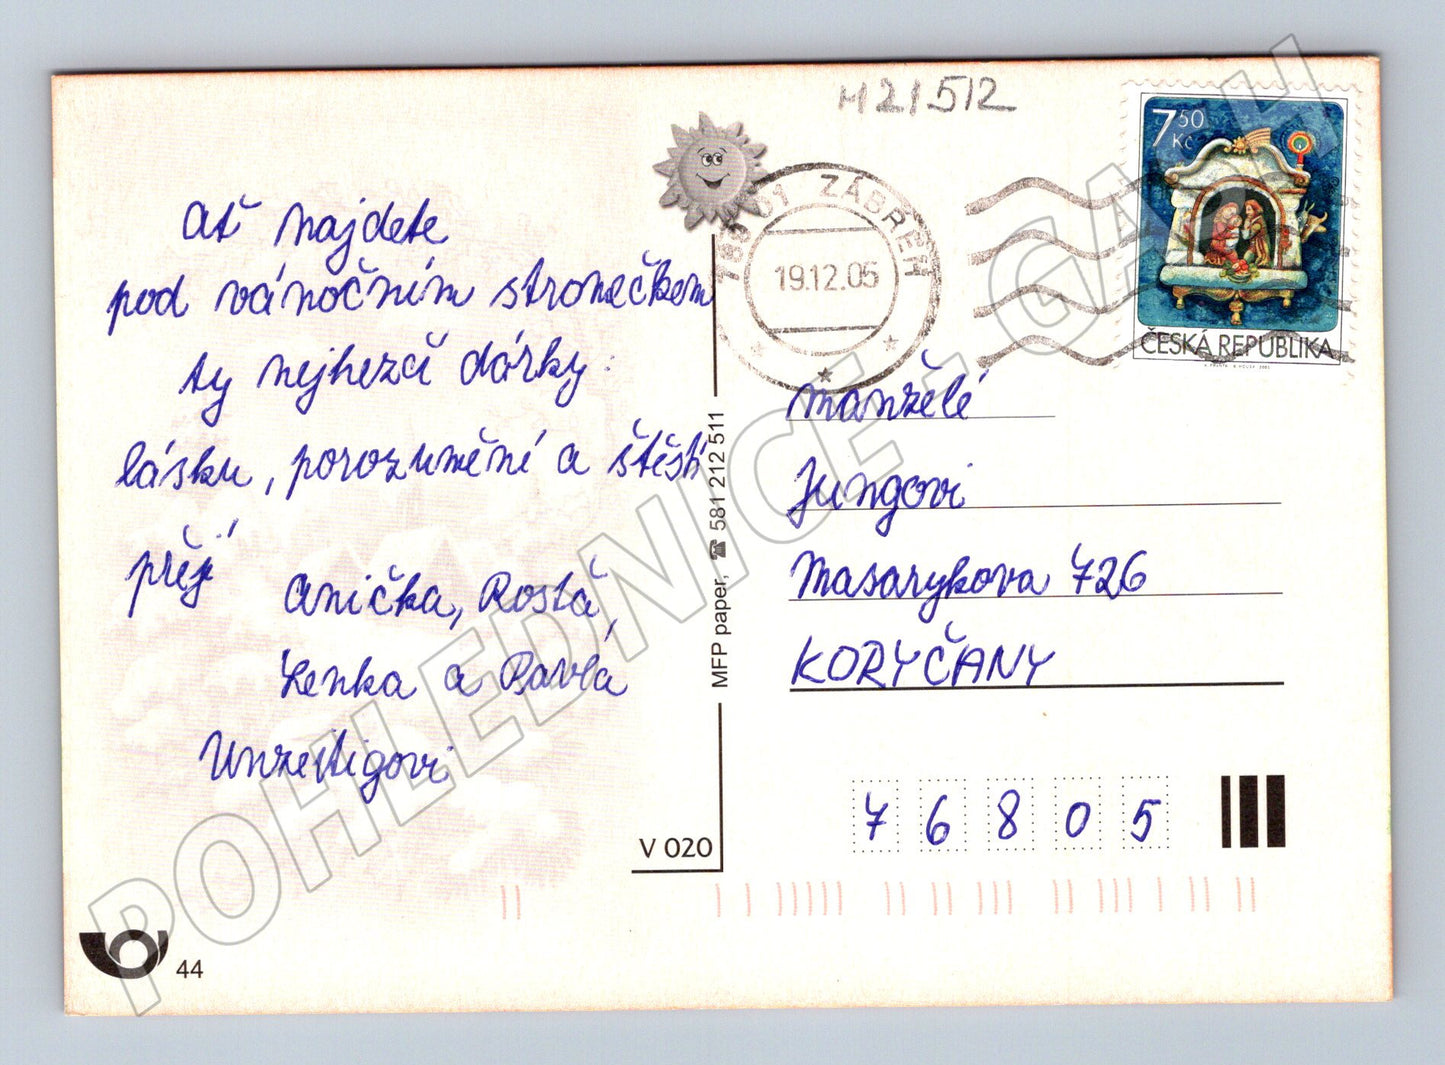 M21512
Ať najdete
pod vánočním stromečkem
ty nejhezčí dárky:
lásku, porozumění a štěstí
přejí
Anička, Rosťa,
Lenka a Pavla
789 01 ZÁBŘEH
19.12.05
7,50
Kč
ČESKÁ REPUBLIKA
manželé
Jungovi
Masarykova 726
KORYČANY
76805
MFP paper, ☎ 581 212 511
V 020
44
POHLEDNICE - GASH